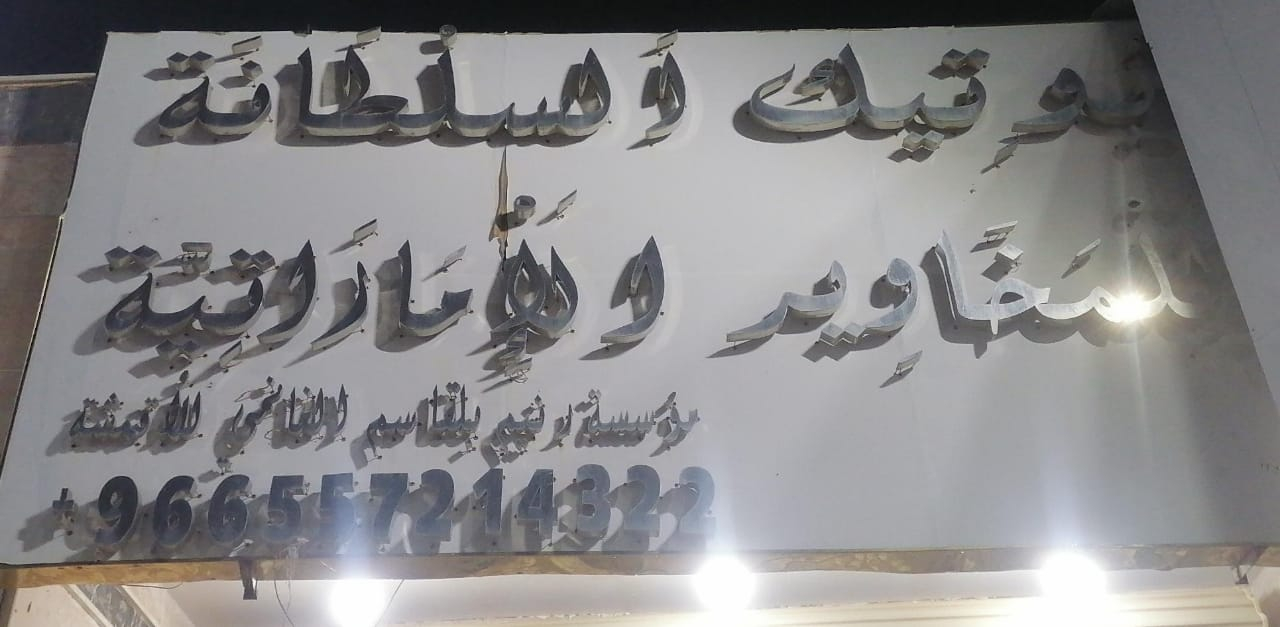 بوتِيك اَلسلْطَانَة
لْمَخَّاوِير اَلْإِمَارَاتِيَّة
مؤسسة رنيم بلقاسم الغانمي للأقمشة
+966557214322